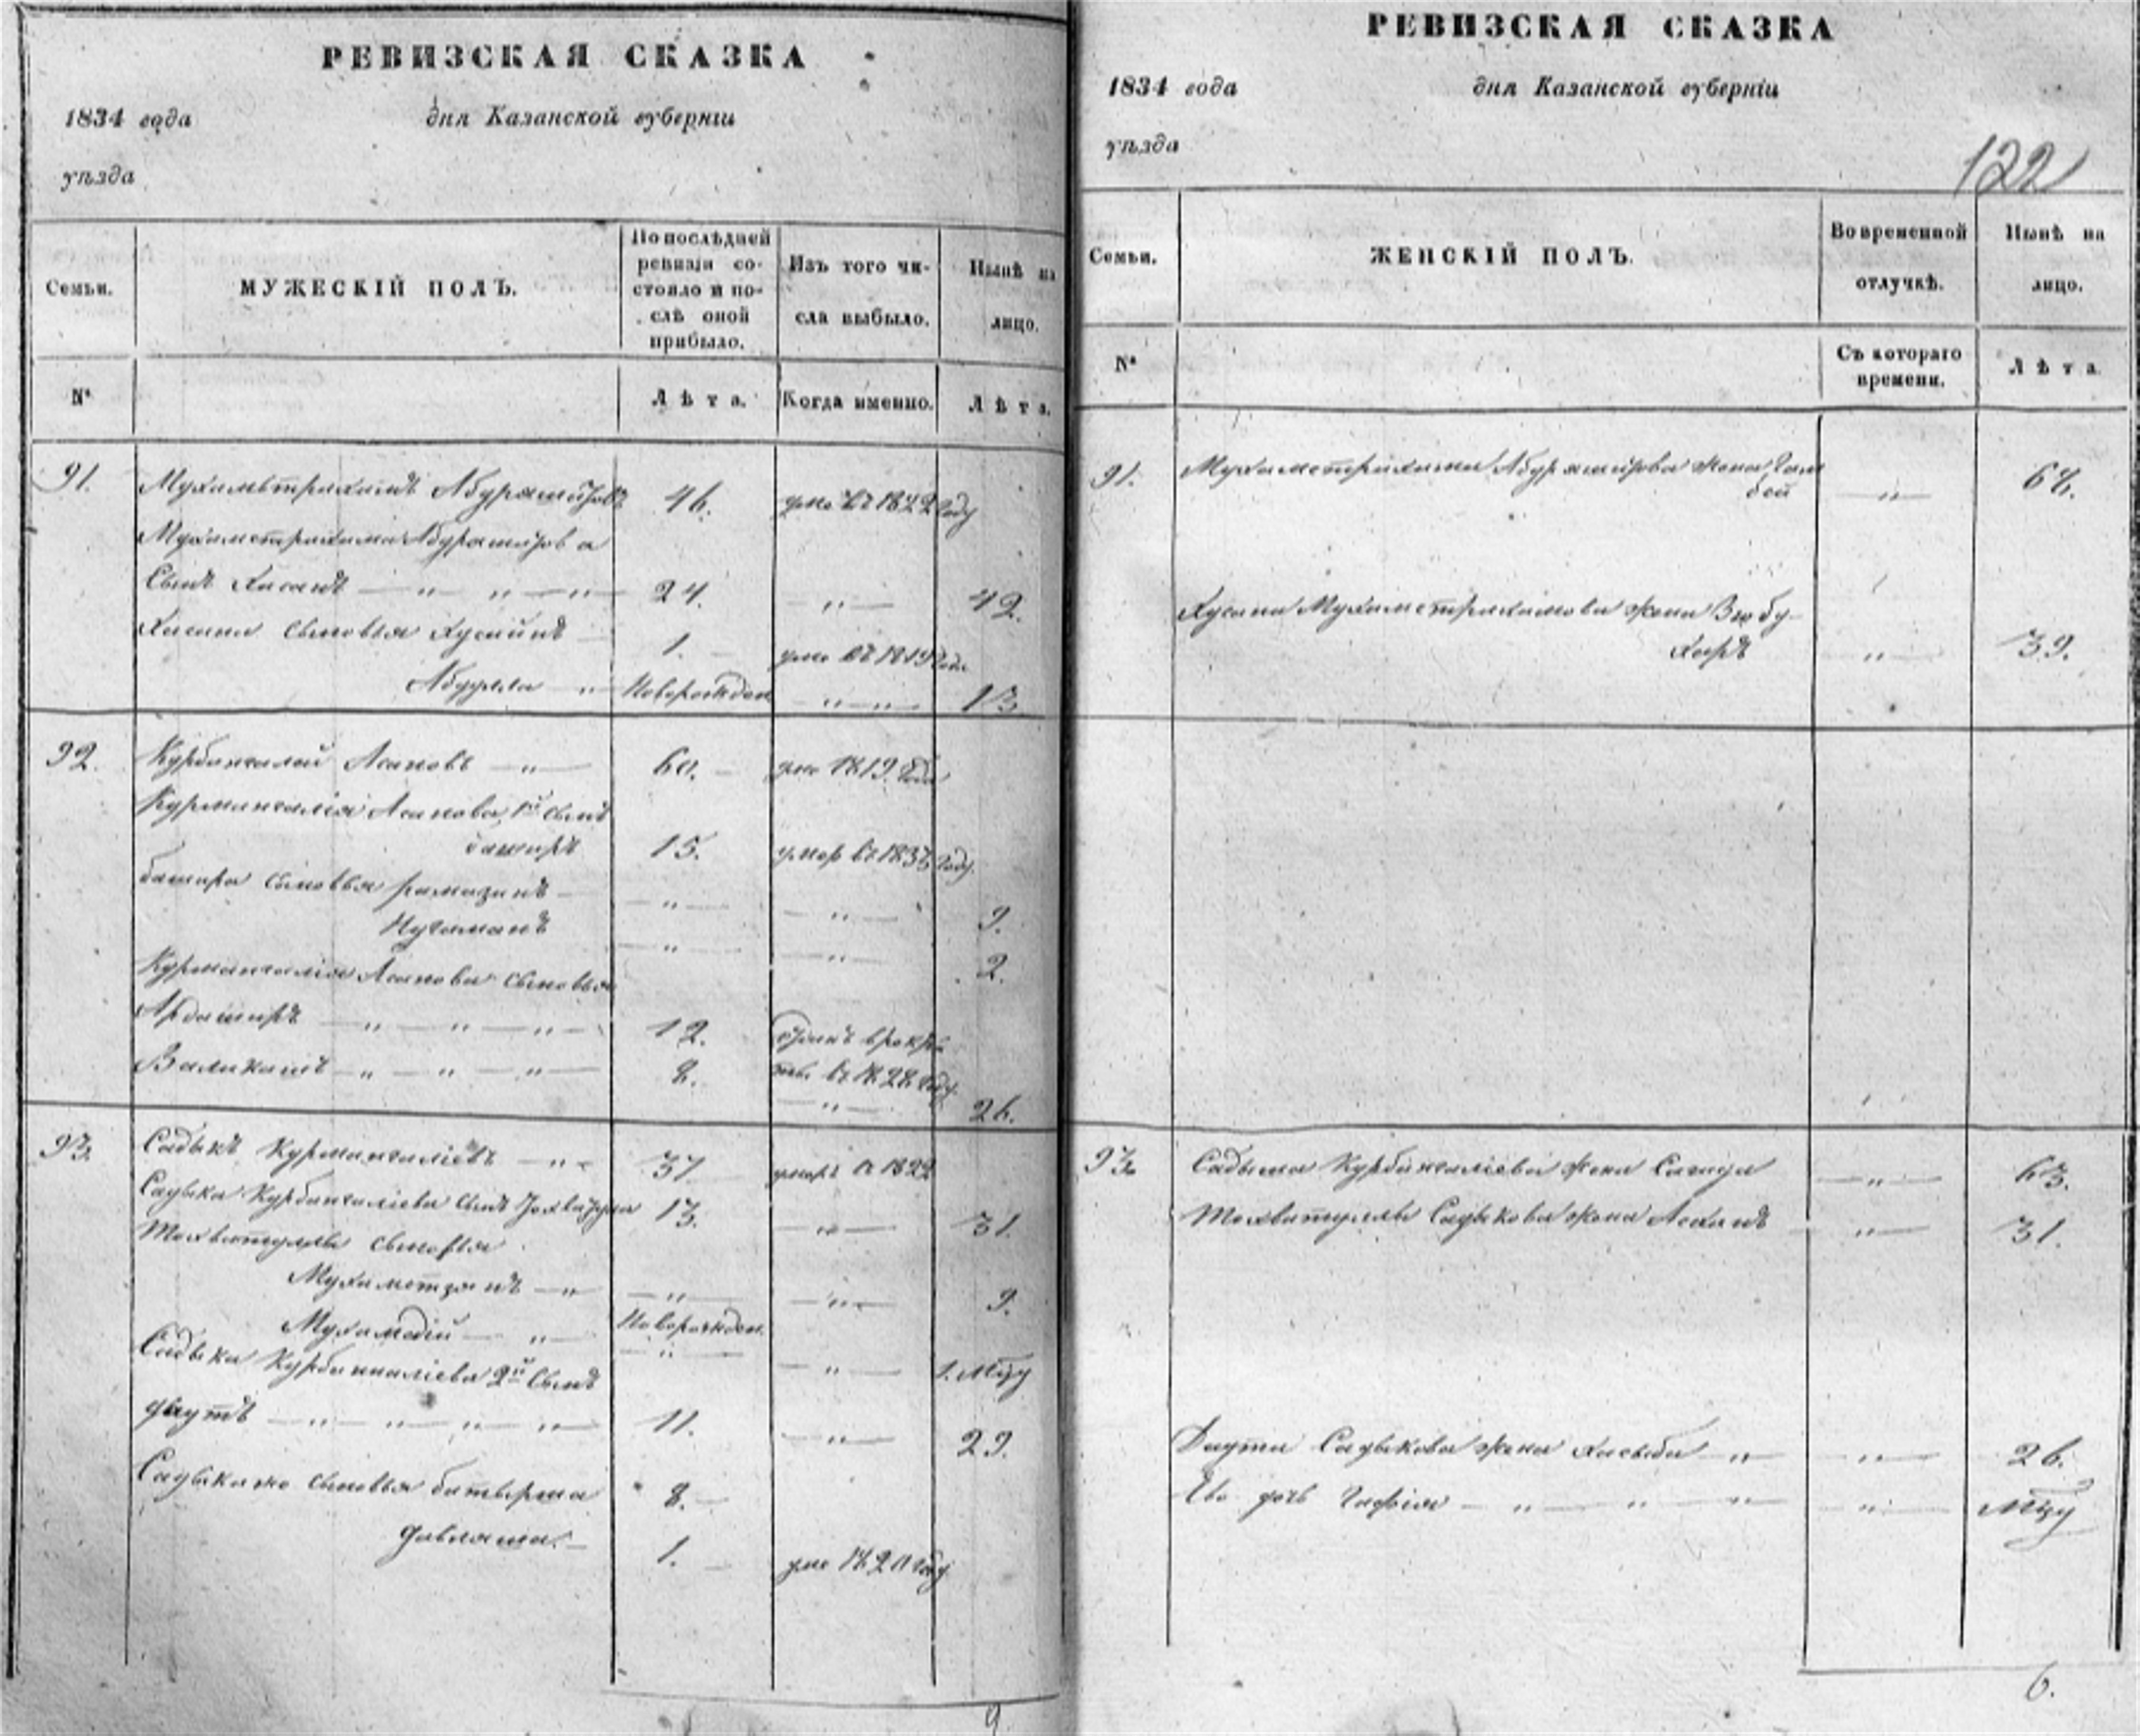 РЕВИЗСКАЯ СКАЗКА
1834 года дня Казанской губерніи
уѣзда
Семьи.
МУЖЕСКІЙ ПОЛЪ.
По послѣдней ревизіи со-
стояло и по-
слѣ оной
прибыло.
Изъ того чи-
сла выбыло.
Нынѣ на
лицо.
№
Лѣта.
Когда именно.
Лѣта.
91. Мухаметрахимъ Абдрашитовъ 46. умре въ 1822 году
Мухаметрахима Абдрашитова
Сынъ Хасанъ 24. 42.
Хасана сыновья Хусаинъ 1. умре въ 1819 году
Абдулла Новорожден 13
92. Курбангалей Асановъ 60. умре 1819 года
Курмангалія Асанова 1й сынъ
баширъ 15. умер въ 1833 году
башира сыновья рамазанъ 9.
Нугаманъ 2.
Курмангалія Асанова сыновья
Ардаширъ 12. отданъ в рекру
ты въ 1828 году
Валихашъ 8. 26.
93. Садыкъ Курмангаліевъ 37 умеръ въ 1822
Садыка Курбангаліева сынъ 13. 31.
Тохватуллы сыновья
Мухаметзянъ 9.
Мухамедій Новорожден. 1. Мцу
Садыка Курбангаліева 2й сынъ
даутъ 11. 29.
Садыка же сыновья батырша 8.
давлятша. 1. уме 1820 году
9
РЕВИЗСКАЯ СКАЗКА
1834 года дня Казанской губерніи
уѣзда
122
Семьи.
ЖЕНСКІЙ ПОЛЪ.
Во временной
отлучкѣ.
Нынѣ на
лицо.
№
Съ котораго
времени.
Лѣта.
91. Мухаметрахима Абдрашитова жена
бей 68.
Хусана Мухаметрахимова жена Зюбу-
харъ 39.
93. Садыка Курбангаліева жена Сагида 63.
Тохватуллы Садыкова жена 31.
Даута Садыкова жена Хасыба 26.
Ево дочь Гафія Мцу
6.